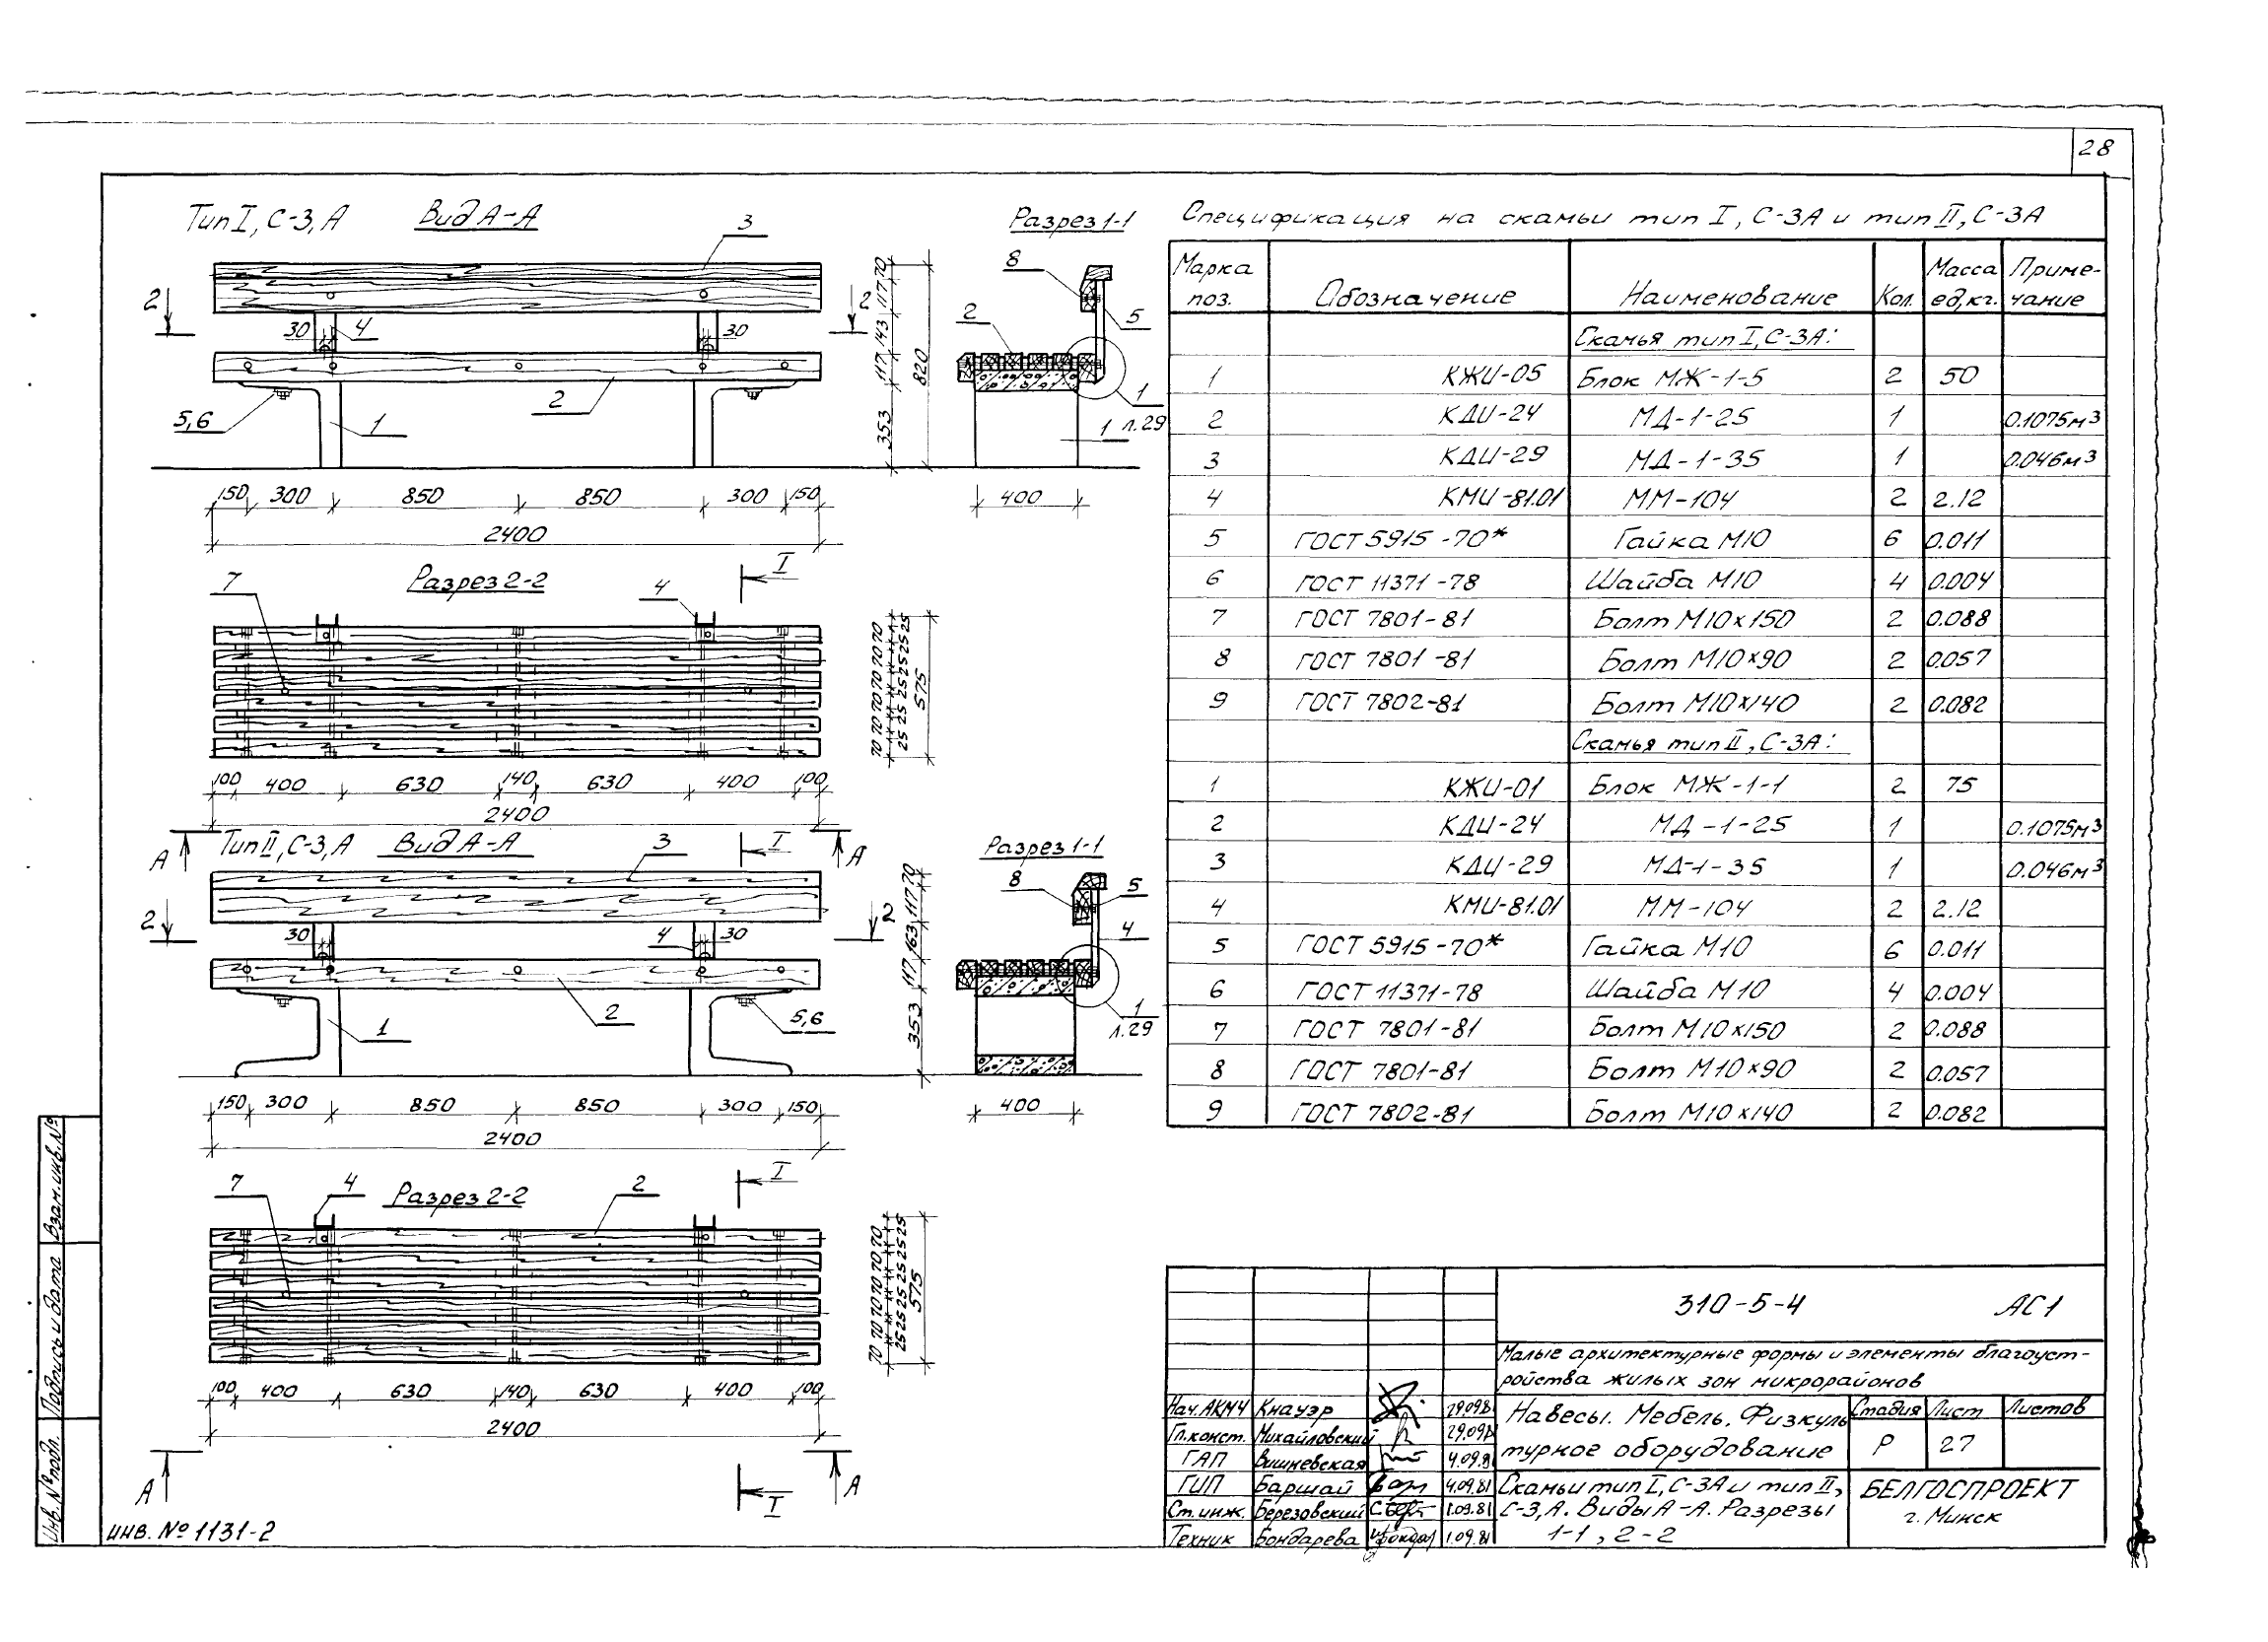 28
Тип I, С-3, А
Вид А-А
3
2
2
30
4
30
5,6
1
2
70
117
143
117
353
820
150 300 850 850 300 150
2400
Разрез 1-1
8
5
2
1
л.29
1
400
7
Разрез 2-2
4
I
70 70 70 70 70 70
25 25 25 25 25 25
575
100 400 630 140 630 400 100
2400
А
I
А
Тип II, С-3, А
Вид А-А
3
2
2
30
4
30
1
2
5,6
70
117
163
117
353
150 300 850 850 300 150
2400
Разрез 1-1
8
5
4
1
л.29
400
7
4
Разрез 2-2
2
I
70 70 70 70 70 70
25 25 25 25 25 25
575
100 400 630 140 630 400 100
2400
А
I
А
Спецификация на скамьи тип I, С-3А и тип II, С-3А
Марка поз. Обозначение Наименование Кол. Масса ед, кг. Примечание
Скамья тип I, С-3А:
1 КЖИ-05 Блок МЖ-1-5 2 50
2 КДИ-24 МД-1-25 1 0.1075м³
3 КДИ-29 МД-1-35 1 0.046м³
4 КМИ-81.01 ММ-104 2 2.12
5 ГОСТ 5915-70* Гайка М10 6 0.011
6 ГОСТ 11371-78 Шайба М10 4 0.004
7 ГОСТ 7801-81 Болт М10х150 2 0.088
8 ГОСТ 7801-81 Болт М10х90 2 0.057
9 ГОСТ 7802-81 Болт М10х140 2 0.082
Скамья тип II, С-3А:
1 КЖИ-01 Блок МЖ-1-1 2 75
2 КДИ-24 МД-1-25 1 0.1075м³
3 КДИ-29 МД-1-35 1 0.046м³
4 КМИ-81.01 ММ-104 2 2.12
5 ГОСТ 5915-70* Гайка М10 6 0.011
6 ГОСТ 11371-78 Шайба М10 4 0.004
7 ГОСТ 7801-81 Болт М10х150 2 0.088
8 ГОСТ 7801-81 Болт М10х90 2 0.057
9 ГОСТ 7802-81 Болт М10х140 2 0.082
310-5-4 АС1
Малые архитектурные формы и элементы благоуст-
ройства жилых зон микрорайонов
Нач.АКМЧ Кнауэр 29.09.8
Гл.конст. Михайловский 29.09.8
ГАП Вишневская 4.09.81
ГИП Баршай 4.09.81
Ст.инж. Березовский 1.09.81
Техник Бондарева 1.09.81
Навесы. Мебель. Физкуль
турное оборудование
Стадия Лист Листов
Р 27
Скамьи тип I, С-3А и тип II,
С-3,А. Виды А-А. Разрезы
1-1, 2-2
БЕЛГОСПРОЕКТ
г. Минск
Взам.инв.№
Подпись и дата
Инв.№подл.
ИНВ. № 1131-2